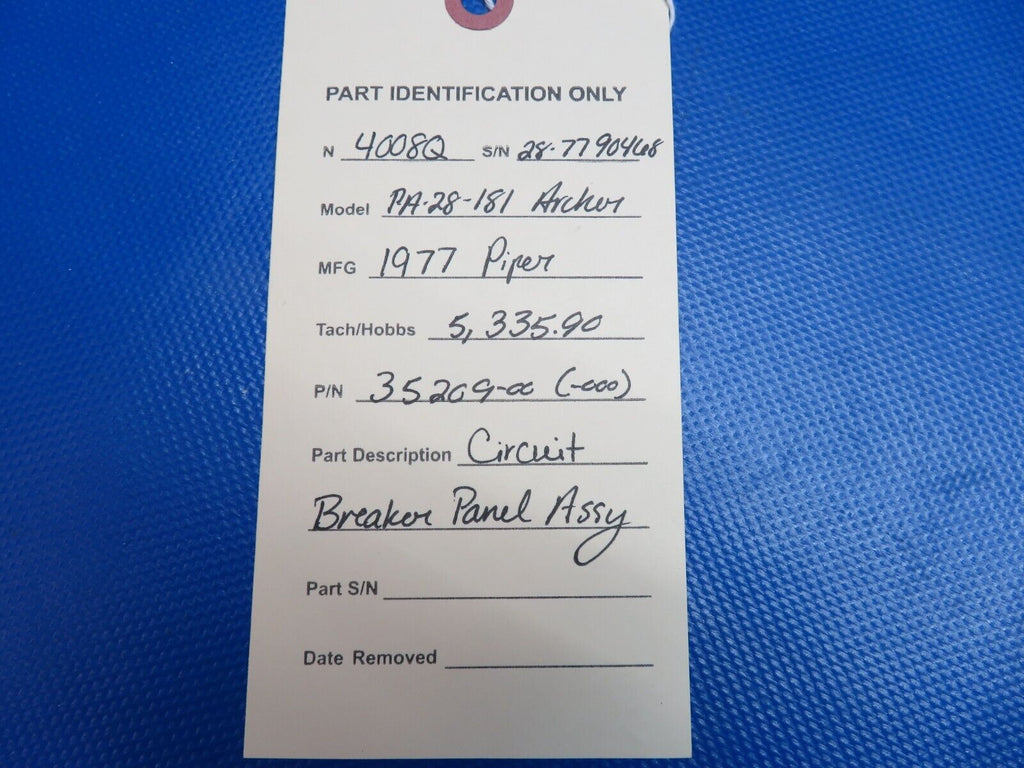 PART IDENTIFICATION ONLY
N 4008Q S/N 28-7790468
Model PA-28-181 Archer
MFG 1977 Piper
Tach/Hobbs 5,335.90
P/N 35209-00 (-000)
Part Description Circuit
Breaker Panel Assy
Part S/N
Date Removed